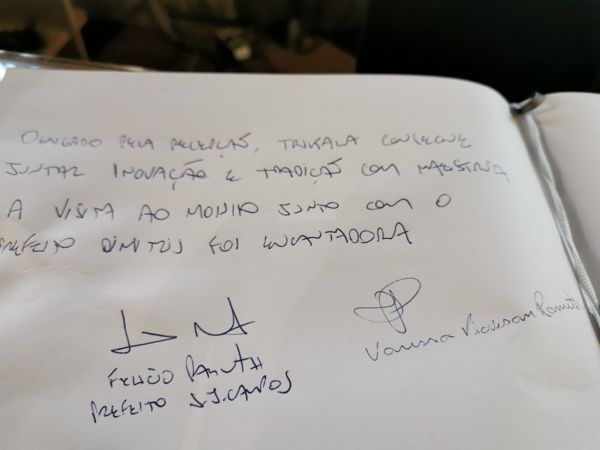 OBRIGADO PELA RECEPÇÃO, TRIKALA CONSEGUE
JUNTAR INOVAÇÃO E TRADIÇÃO COM MAESTRIA
A VISITA AO MOINHO JUNTO COM O
PREFEITO DIMITRIS FOI ENCANTADORA
FELICIO RAMUTH
PREFEITO S.J.CAMPOS
Vanessa Ramuth